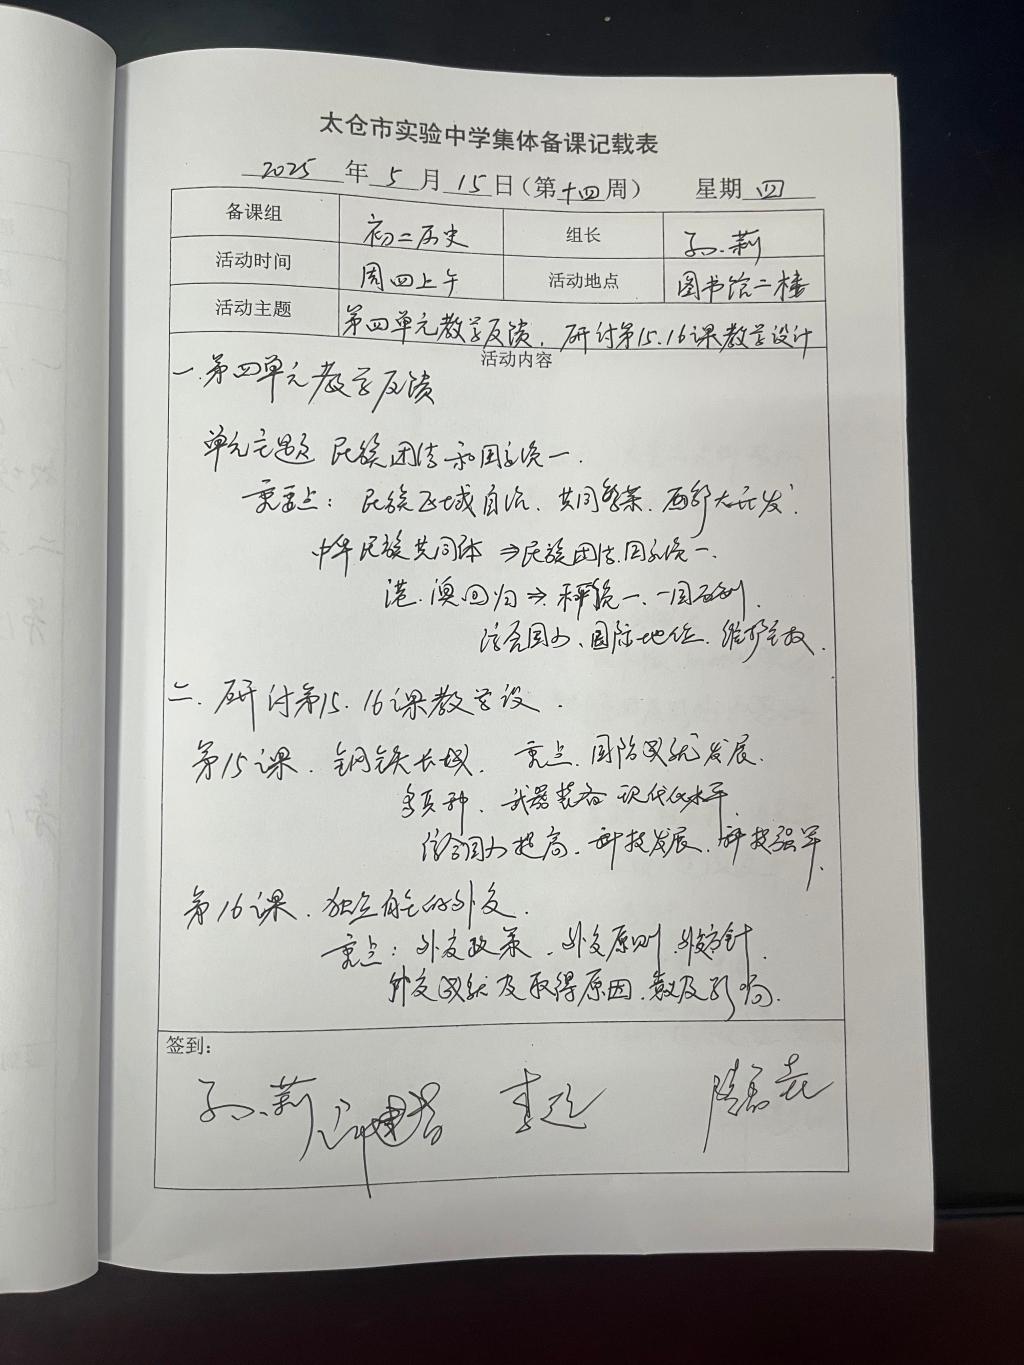 太仓市实验中学集体备课记载表
2025年5月15日（第十四周） 星期四
备课组 初二历史 组长 孙莉
活动时间 周四上午 活动地点 图书馆二楼
活动主题 第四单元教学反馈．研讨第15.16课教学设计
活动内容
一.第四单元教学反馈
单元主题 民族团结和国家统一．
重点：民族区域自治．共同繁荣．西部大开发．
中华民族共同体⇒民族团结．国家统一．
港．澳回归⇒ 统一．一国两制．
综合国力、国际地位．维护主权．
二．研讨第15．16课教学设．
第15课．钢铁长城． 重点．国防成就发展．
多兵种．武器装备现代化水平．
综合国力提高．科技发展．科技强军．
第16课．独立自主的外交．
重点：外交政策．外交原则．外交方针．
外交成就及取得原因． 及影响．
签到：
孙莉 李 陆